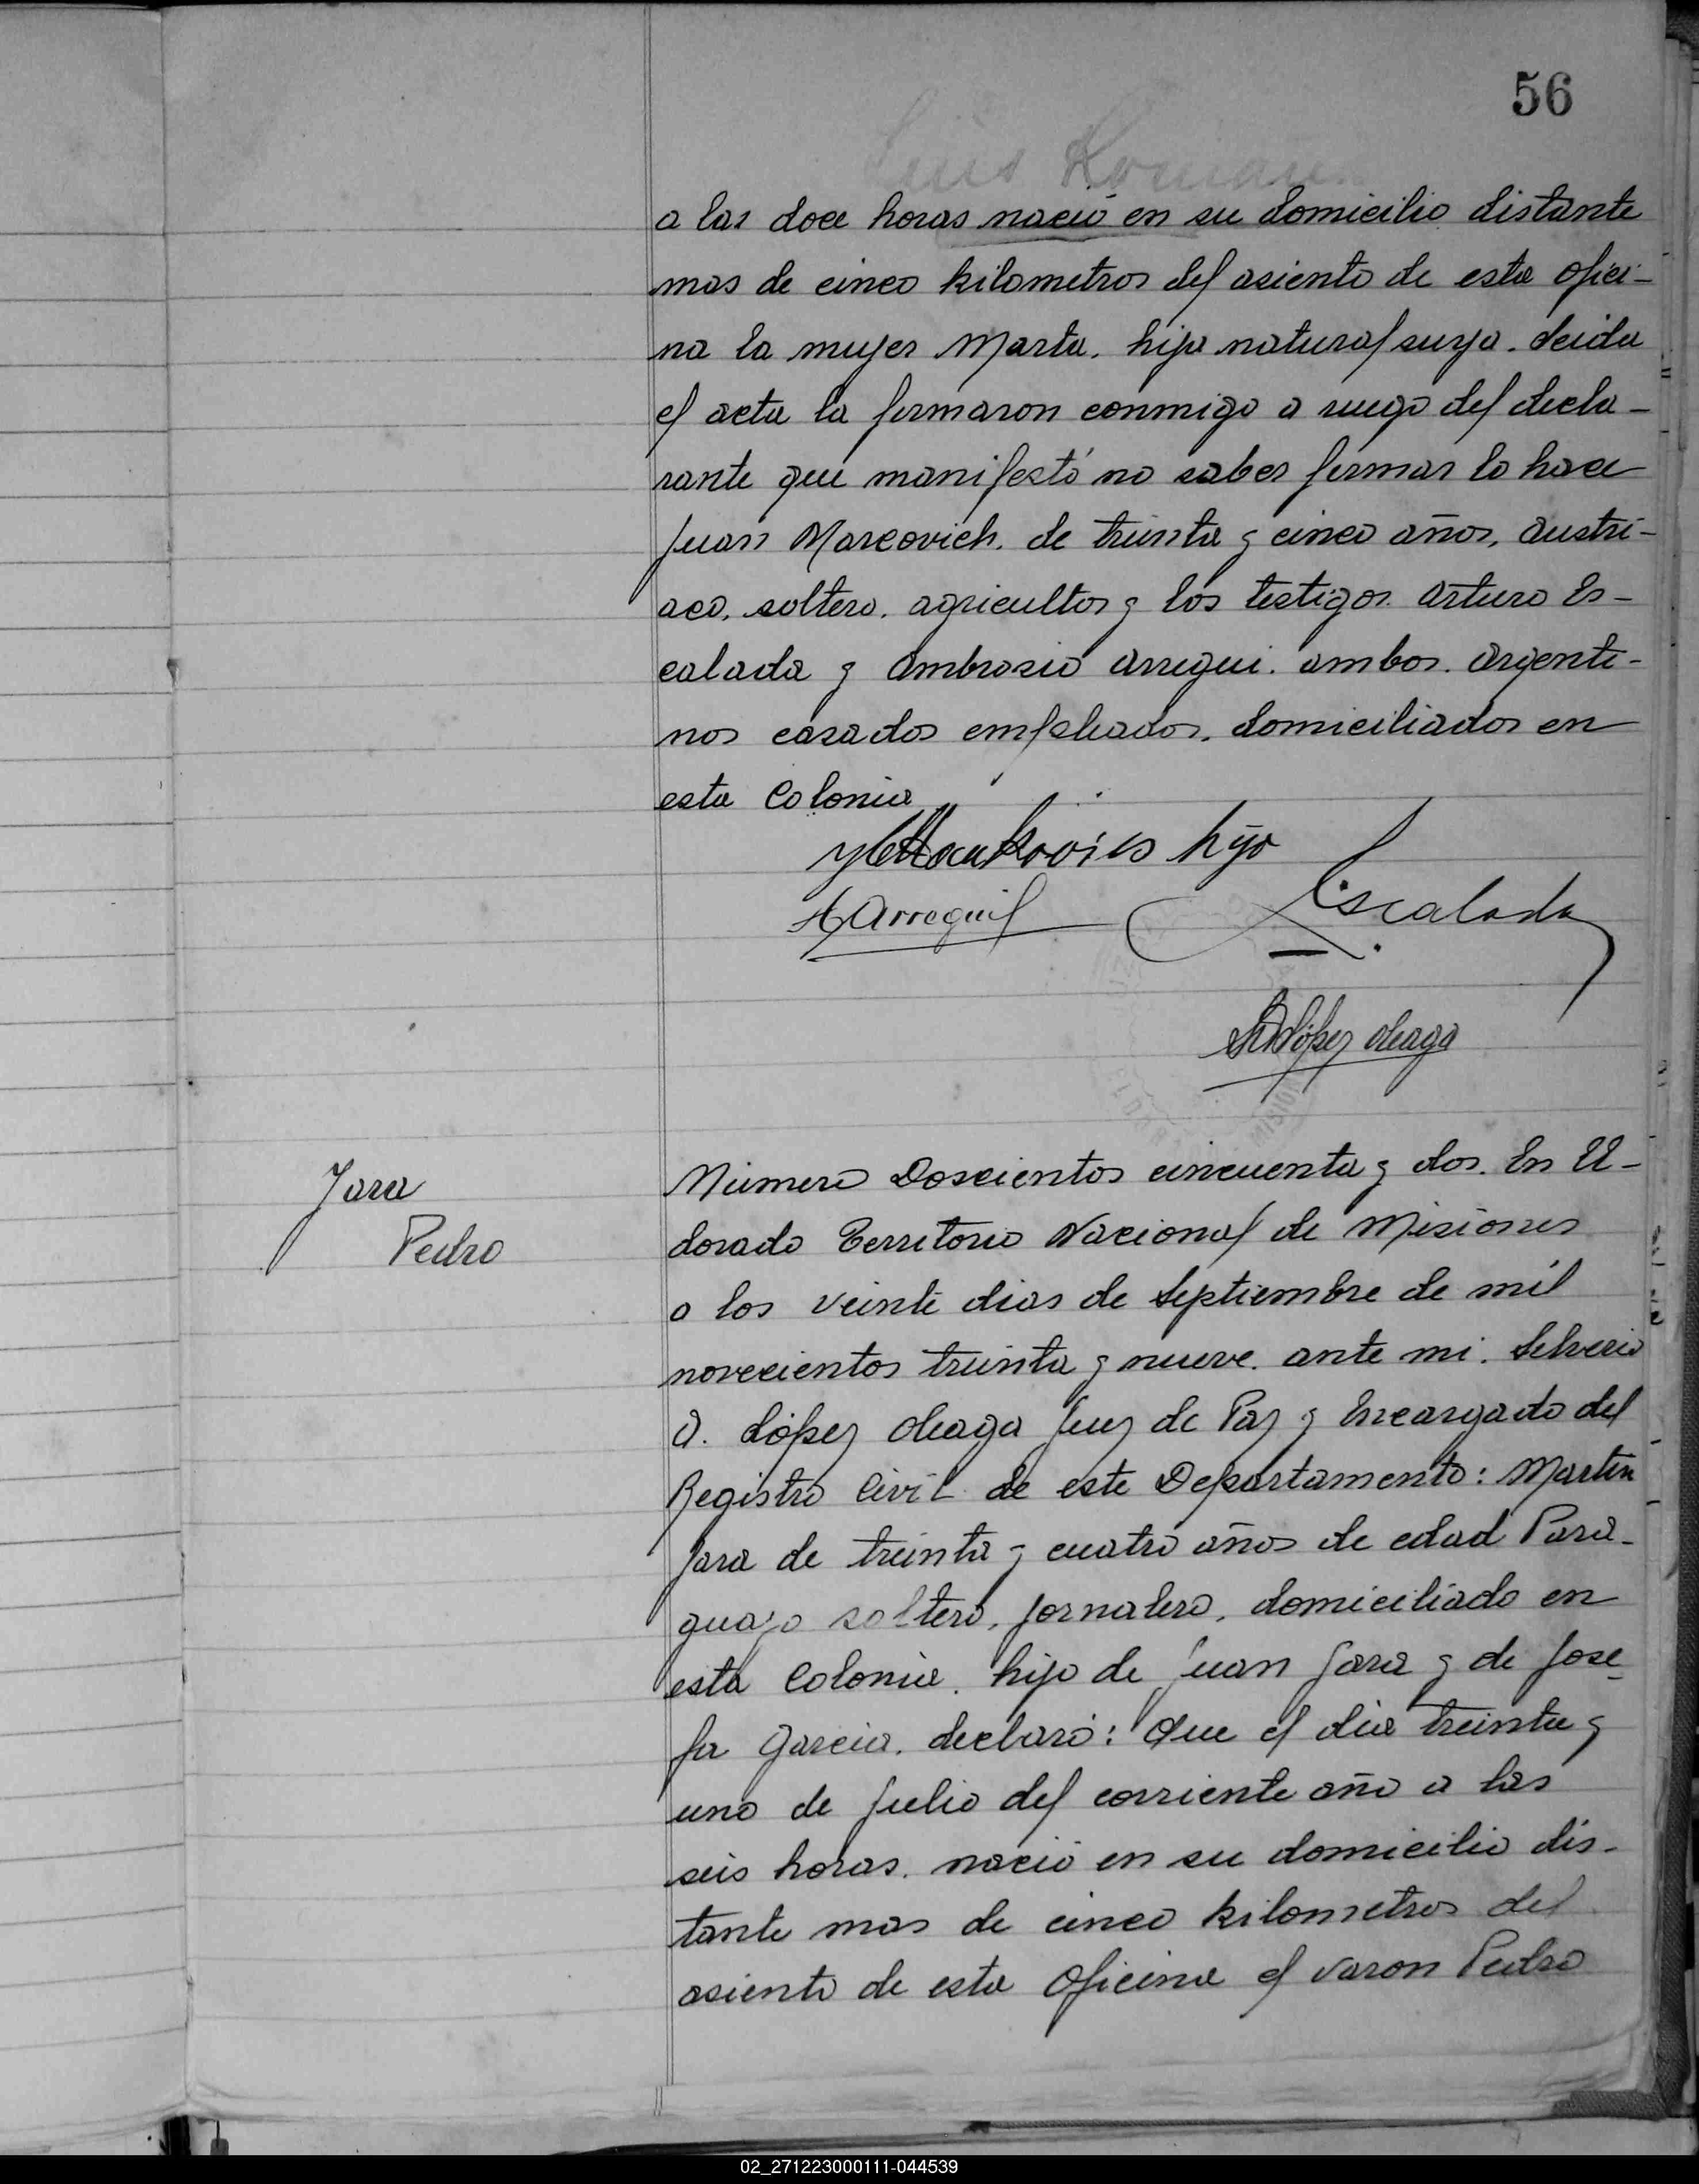 56
Luis Roman
a las doce horas nació en su domicilio distante
mas de cinco kilometros del asiento de esta ofici-
na la mujer Marta. hija natural suya. Leida
el acta la firmaron conmigo a ruego del decla-
rante que manifestó no saber firmar lo hace
Juan Marcovich. de treinta y cinco años, austri-
aco. soltero. agricultor y los testigos. Arturo Es-
calada y Ambrosio Arregui. ambos. Argenti-
nos casados empleados. domiciliados en
esta Colonia
hijo
A Arregui
Escalada
López Aleaga
Jara
Pedro
Número Doscientos cincuenta y dos. En El-
dorado Territorio Nacional de Misiones
a los veinte dias de Septiembre de mil
novecientos treinta y nueve. ante mi. Silverio
O. López Aleaga Juez de Paz y Encargado del
Registro Civil de este Departamento: Martin
Jara de treinta y cuatro años de edad Para-
guayo soltero, jornalero, domiciliado en
esta Colonia. hijo de Juan Jara y de Jose-
fa Garcia. declaró: Que el dia treinta y
uno de Julio del corriente año a las
seis horas. nació en su domicilio dis-
tante mas de cinco kilometros del
asiento de esta Oficina el varon Pedro
02_271223000111-044539